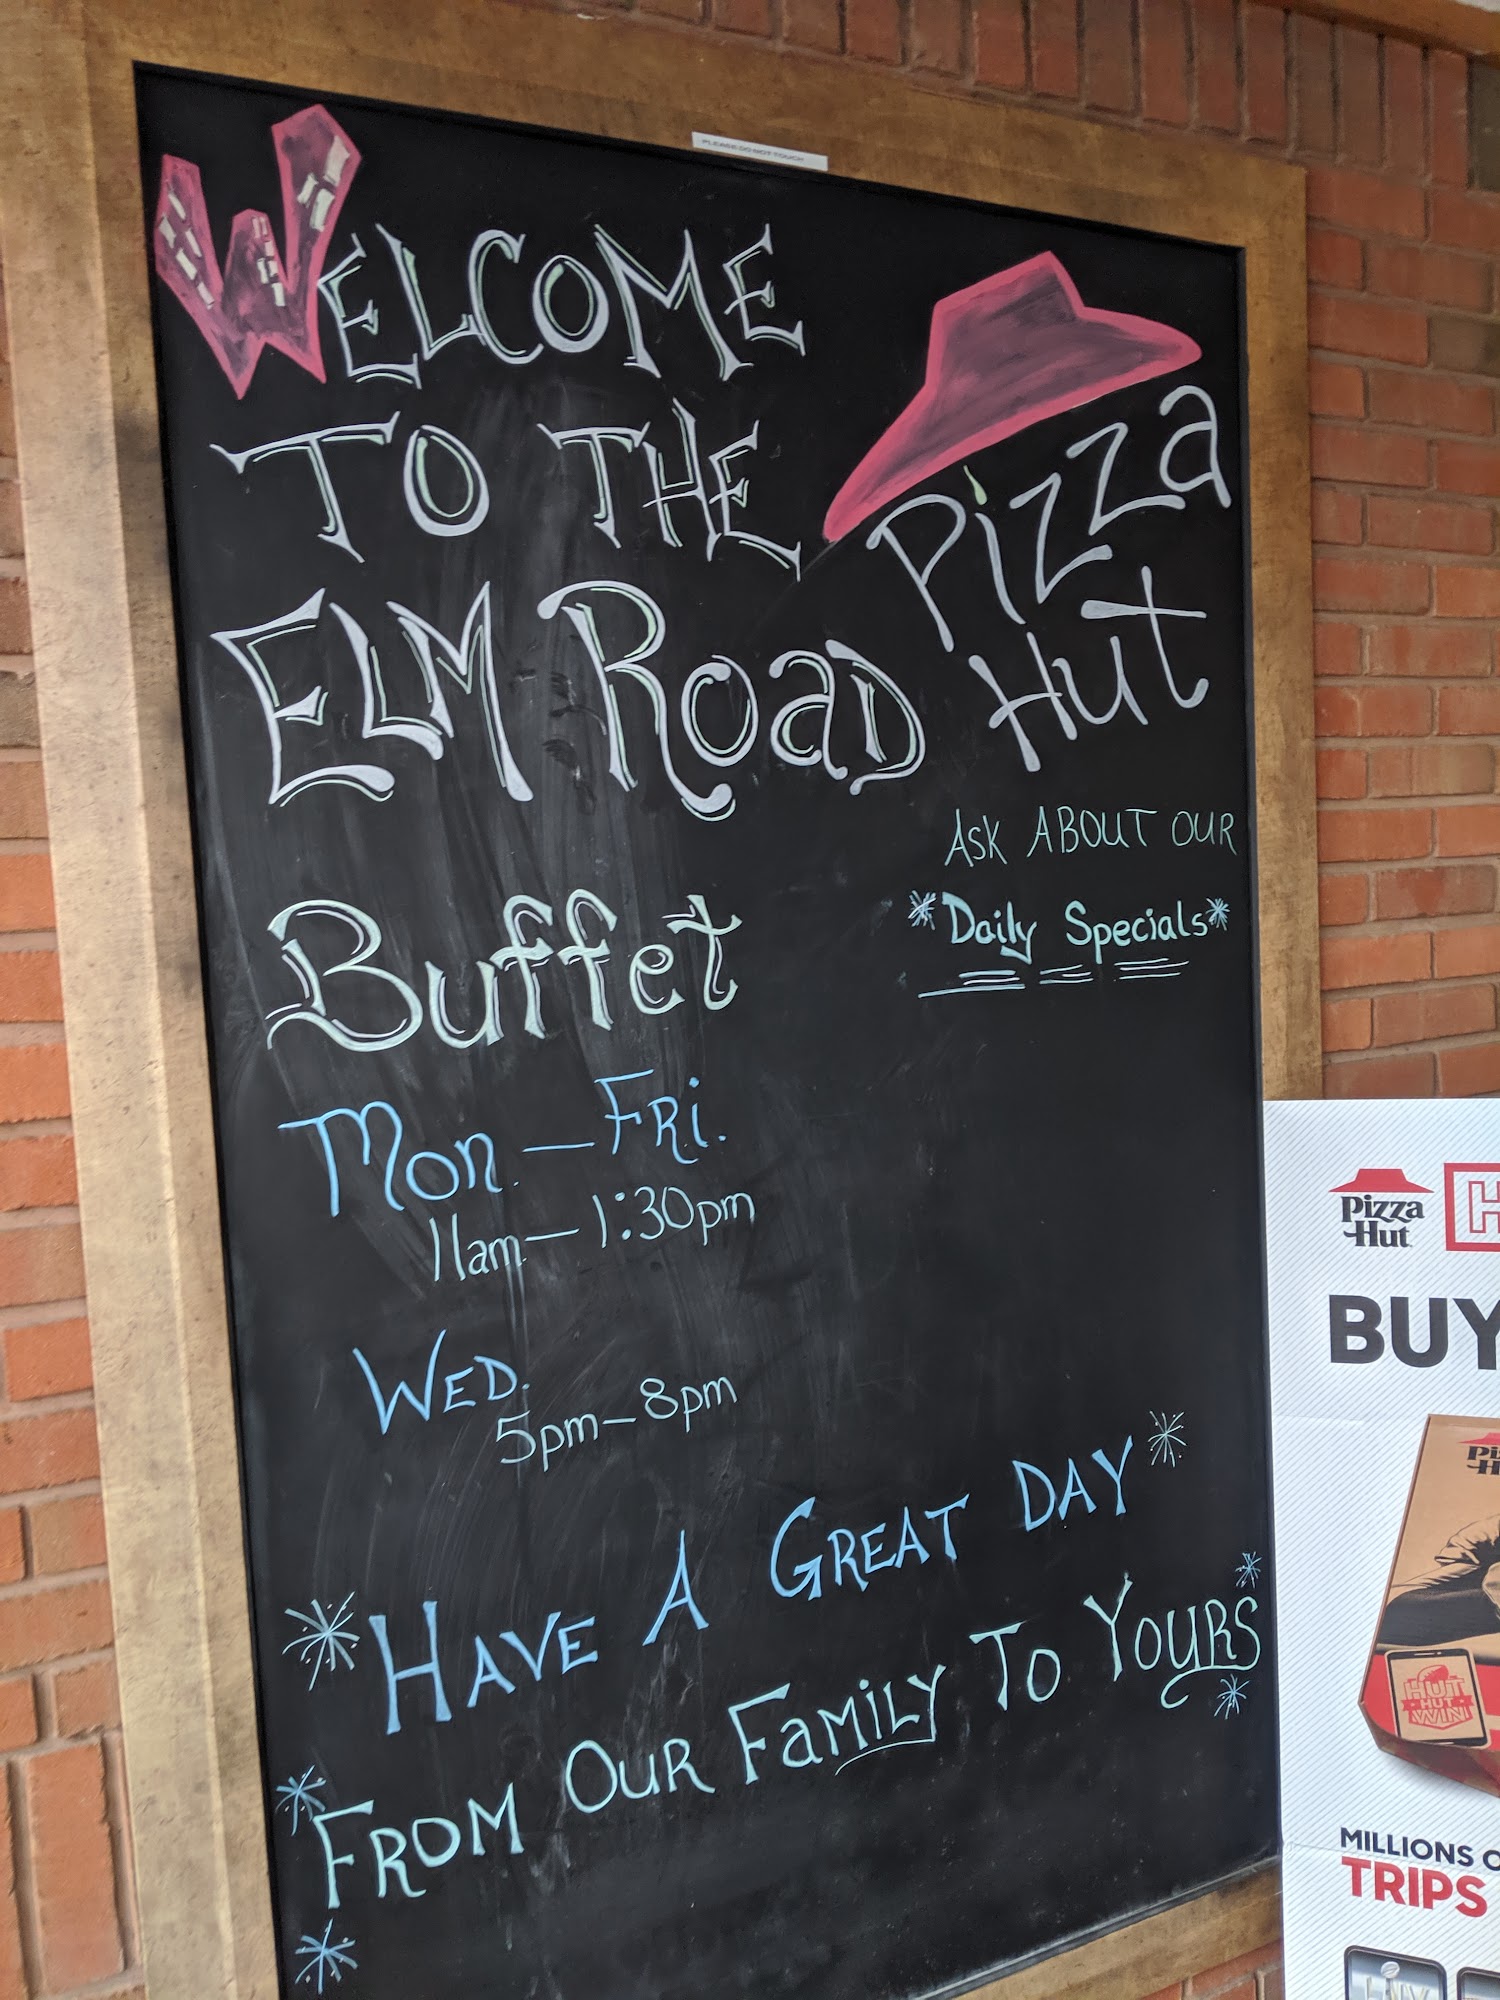 PLEASE DO NOT TOUCH
WELCOME
TO THE
ELM ROAD
Pizza
Hut
ASK ABOUT OUR
Daily Specials
Buffet
Mon. — FRi.
11am — 1:30pm
WED.
5pm — 8pm
HAVE A GREAT DAY
FROM OUR FaMILY TO YOURS
Pizza
Hut
H
BUY
Pi
H
HUT
HUT
WIN
MILLIONS O
TRIPS